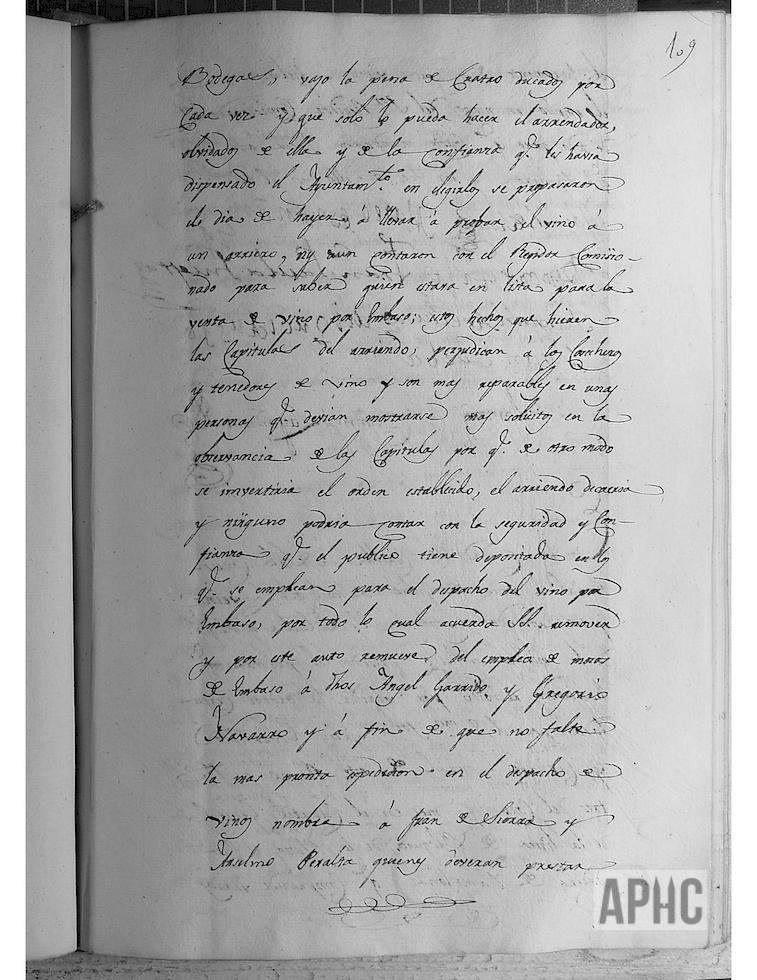 109
Bodegas, vajo la pena de Cuatro ducados por
Cada vez y que solo lo pueda hacer el arrendador,
olvidados de ella y de la Confianza q.e les havia
dispensado el Ayuntam.to en elegirlos se propasaron
el dia de hayer á llevar á probar el vino á
un arriero, ny aun contaron con el Regidor Comisio-
nado para saber quien estava en lista para la
venta de vino por Embaso; estos hechos que hieren
las Capitulas del arriendo, perjudican á los Cosecheros
y tenedores de vino y son mas reparables en unas
personas q.e devian mostrarse mas solicitos en la
observancia de las Capitulas por q.e de otro modo
se invertiria el orden establecido, el arriendo decaeria
y ninguno podria contar con la seguridad y Con-
fianza q.e el publico tiene depositada en los
q.e se emplean para el despacho del vino por
Embaso, por todo lo qual acuerda SS. remover
y por este auto remueve del empleo de mozos
de Embaso á dhos Angel Garrido, y Gregorio
Navarro y á fin de que no falte
la mas pronta expedicion en el despacho de
vinos nombra á Juan de Sierra y
Anselmo Peralta quienes deveran prestar
APHC